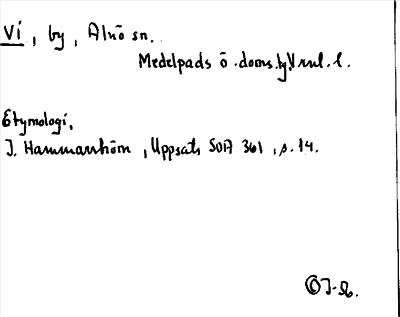 Vi, by, Alnö sn.
Medelpads ö. doms.
Etymologi.
J. Hammarström, Uppsats SOA 361, s. 14.